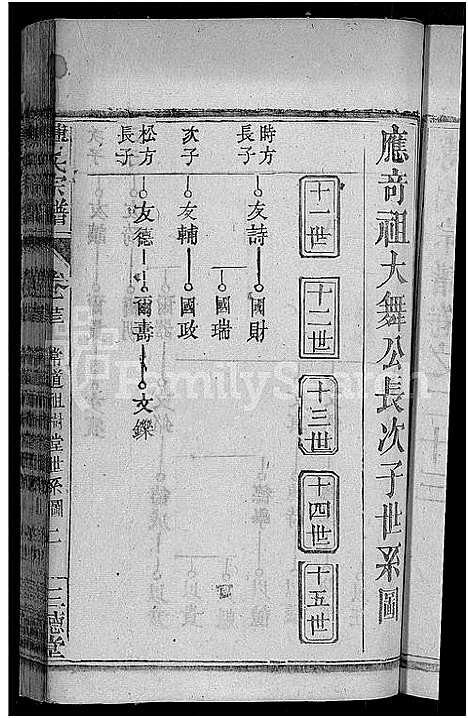 應奇祖大舞公長次子世系圖
十一世
十二世
十三世
十四世
十五世
時方
長子
友詩
國財
國瑞
次子
友輔
國政
松方
長子
友德
爾壽
文鑠
氏宗譜
卷
祖樹堂世系圖
二
三德堂
FamilySearch